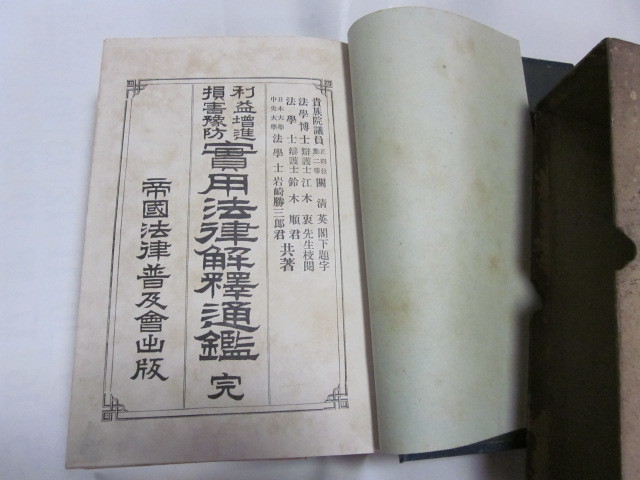 貴族院議員 正四位勳二等 關清英閣下題字
法學博士 辯護士 江木衷先生校閲
法學士 辯護士 鈴木順君
日本大學 中央大學 法學士 岩崎勝三郎君 共著
利益增進
損害豫防
實用法律解釋通鑑 完
帝國法律普及會出版